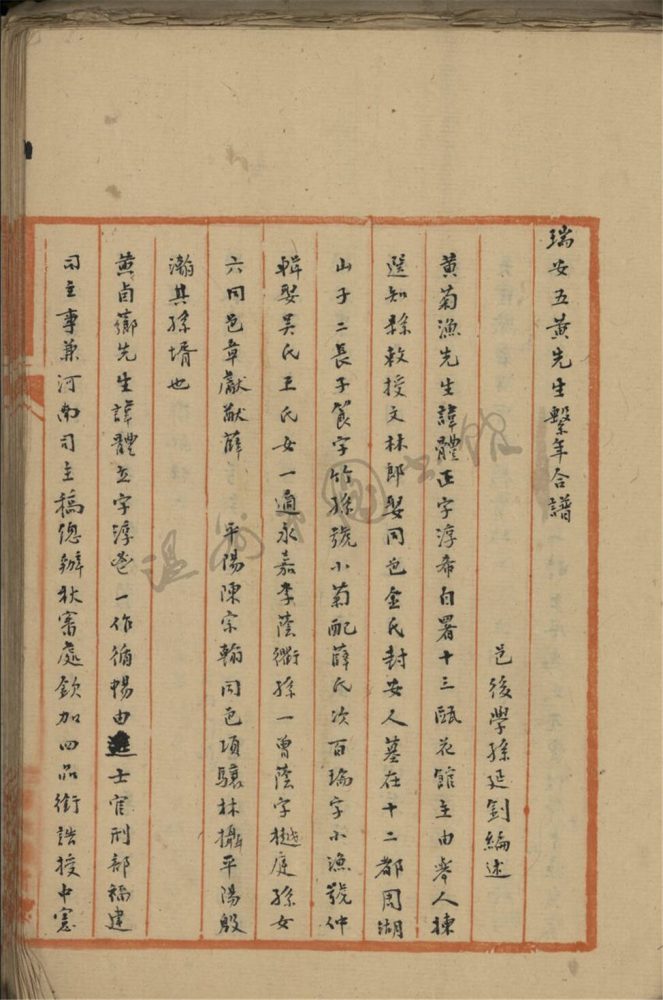 瑞安五黃先生繫年合譜
邑後學孫延釗編述
黄菊漁先生諱體正字淳希自署十三甌花館主由舉人揀
選知縣敕授文林郎娶同邑金氏封安人墓在十二都周湖
山子二長子飴字竹孫號小菊配薛氏次百瑜字小漁號仲
輯娶吳氏王氏女一適永嘉李蔭衢孫一曾蔭字樾庭孫女
六同邑韋獻猷薛 平陽陳宗翰同邑項驤林攝平陽殷
瀚其孫壻也
黄卣薌先生諱體立字淳邕一作循暢由進士官刑部福建
司主事兼河南司主稿總辦秋審處欽加四品銜誥授中憲
溫州市圖書館